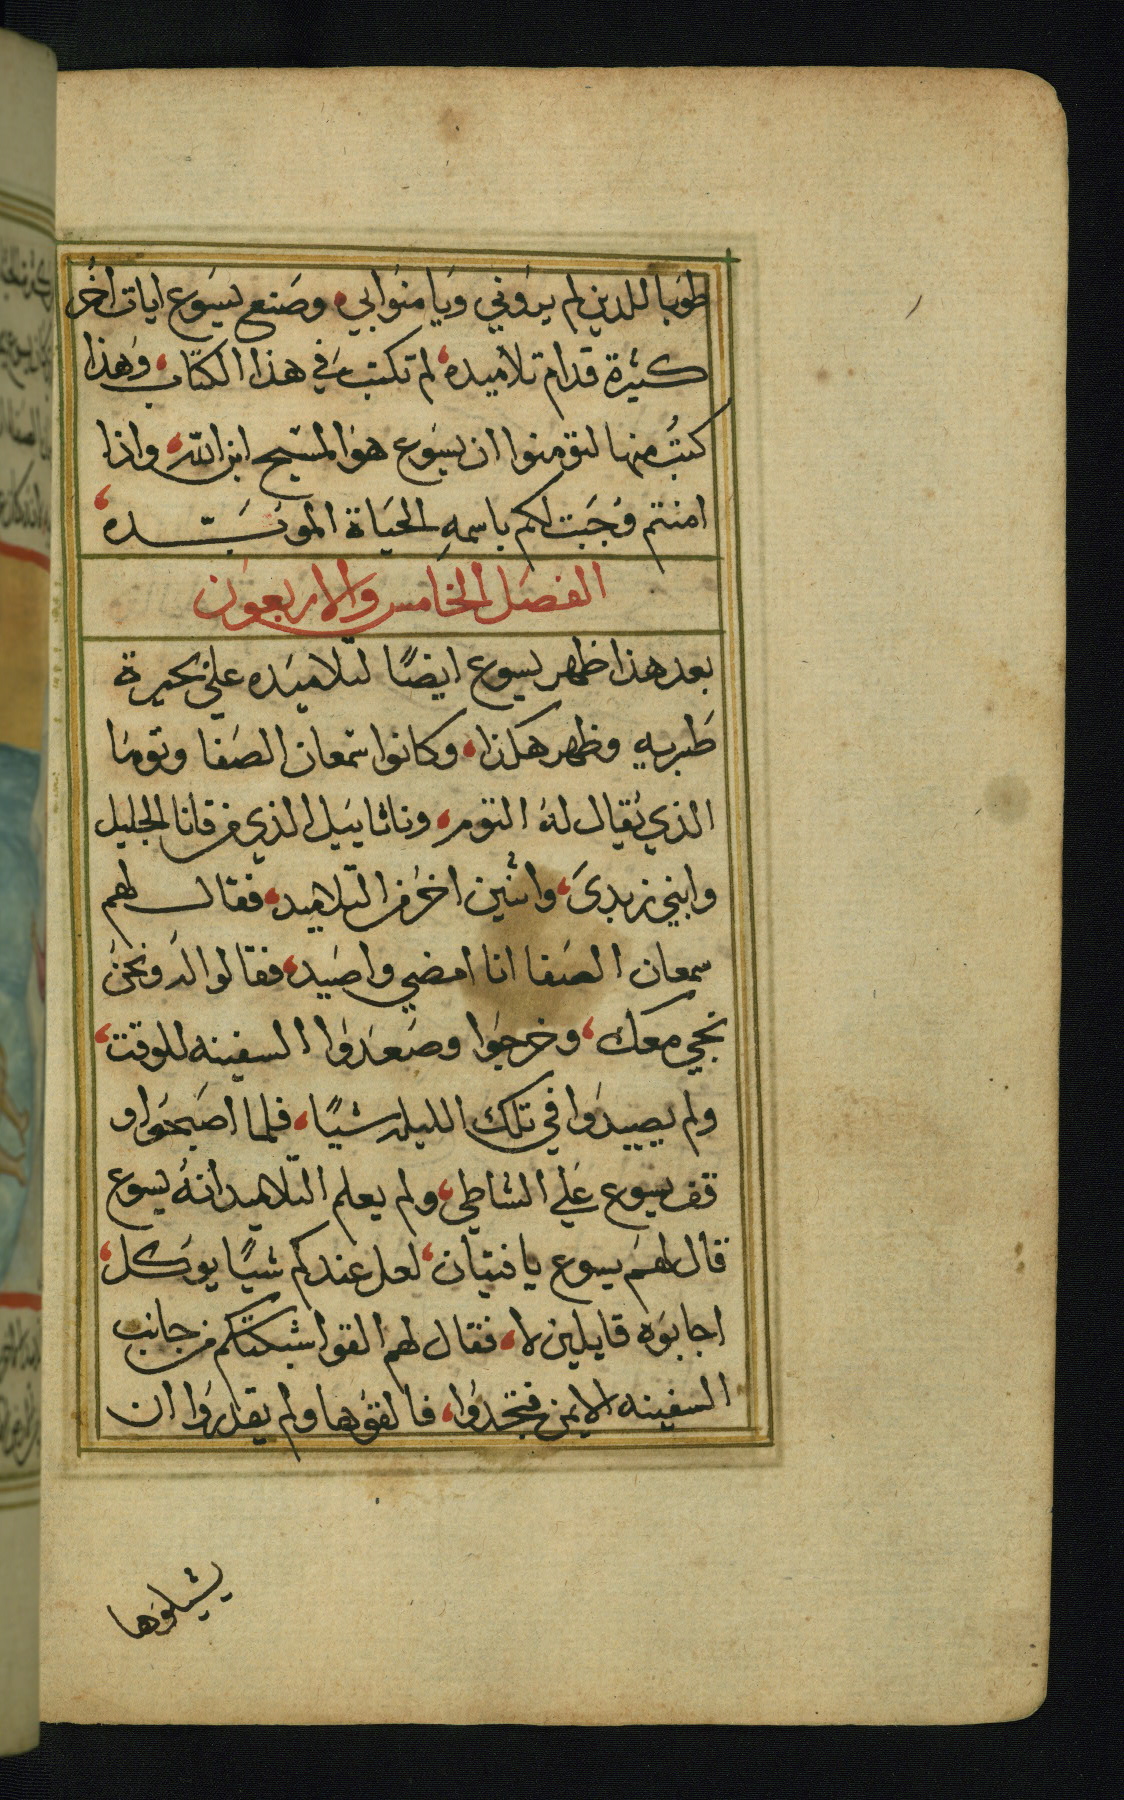 طوبا للدين لم يروني ويامنوا بي، وصنع يسوع ايات اخر
كثيرة قدام تلاميده، لم تكتب في هذا الكتاب، وهذا
كتب منها لتومنوا ان يسوع هو المسيح ابن الله، واذا
امنتم وجبت لكم باسمه الحياة الموبده،
الفصل الخامس والاربعون
بعد هذا ظهر يسوع ايضًا لتلاميده علي بحيرة
طبريه وظهر هكذا، وكانوا سمعان الصفا وتوما
الذي يقال له التوم، وناثاييل الذي من قانا الجليل
وابني زبدي، واثنين اخر من التلاميد، فقال لهم
سمعان الصفا انا امضي واصيد، فقالوا له ونحن
نجي معك، وخرجوا وصعدوا السفينه للوقت،
ولم يصيدوا في تلك الليله شيًا، فلما اصبحوا و
قف يسوع علي الشاطي، ولم يعلم التلاميد انهُ يسوع
قال لهم يسوع يا فتيان، لعل عندكم شيًا يوكل،
اجابوه قايلين لا، فقال لهم القوا شبكتكم من جانب
السفينه الايمن فتجدوا، فالقوها ولم يقدروا ان
يشيلوها